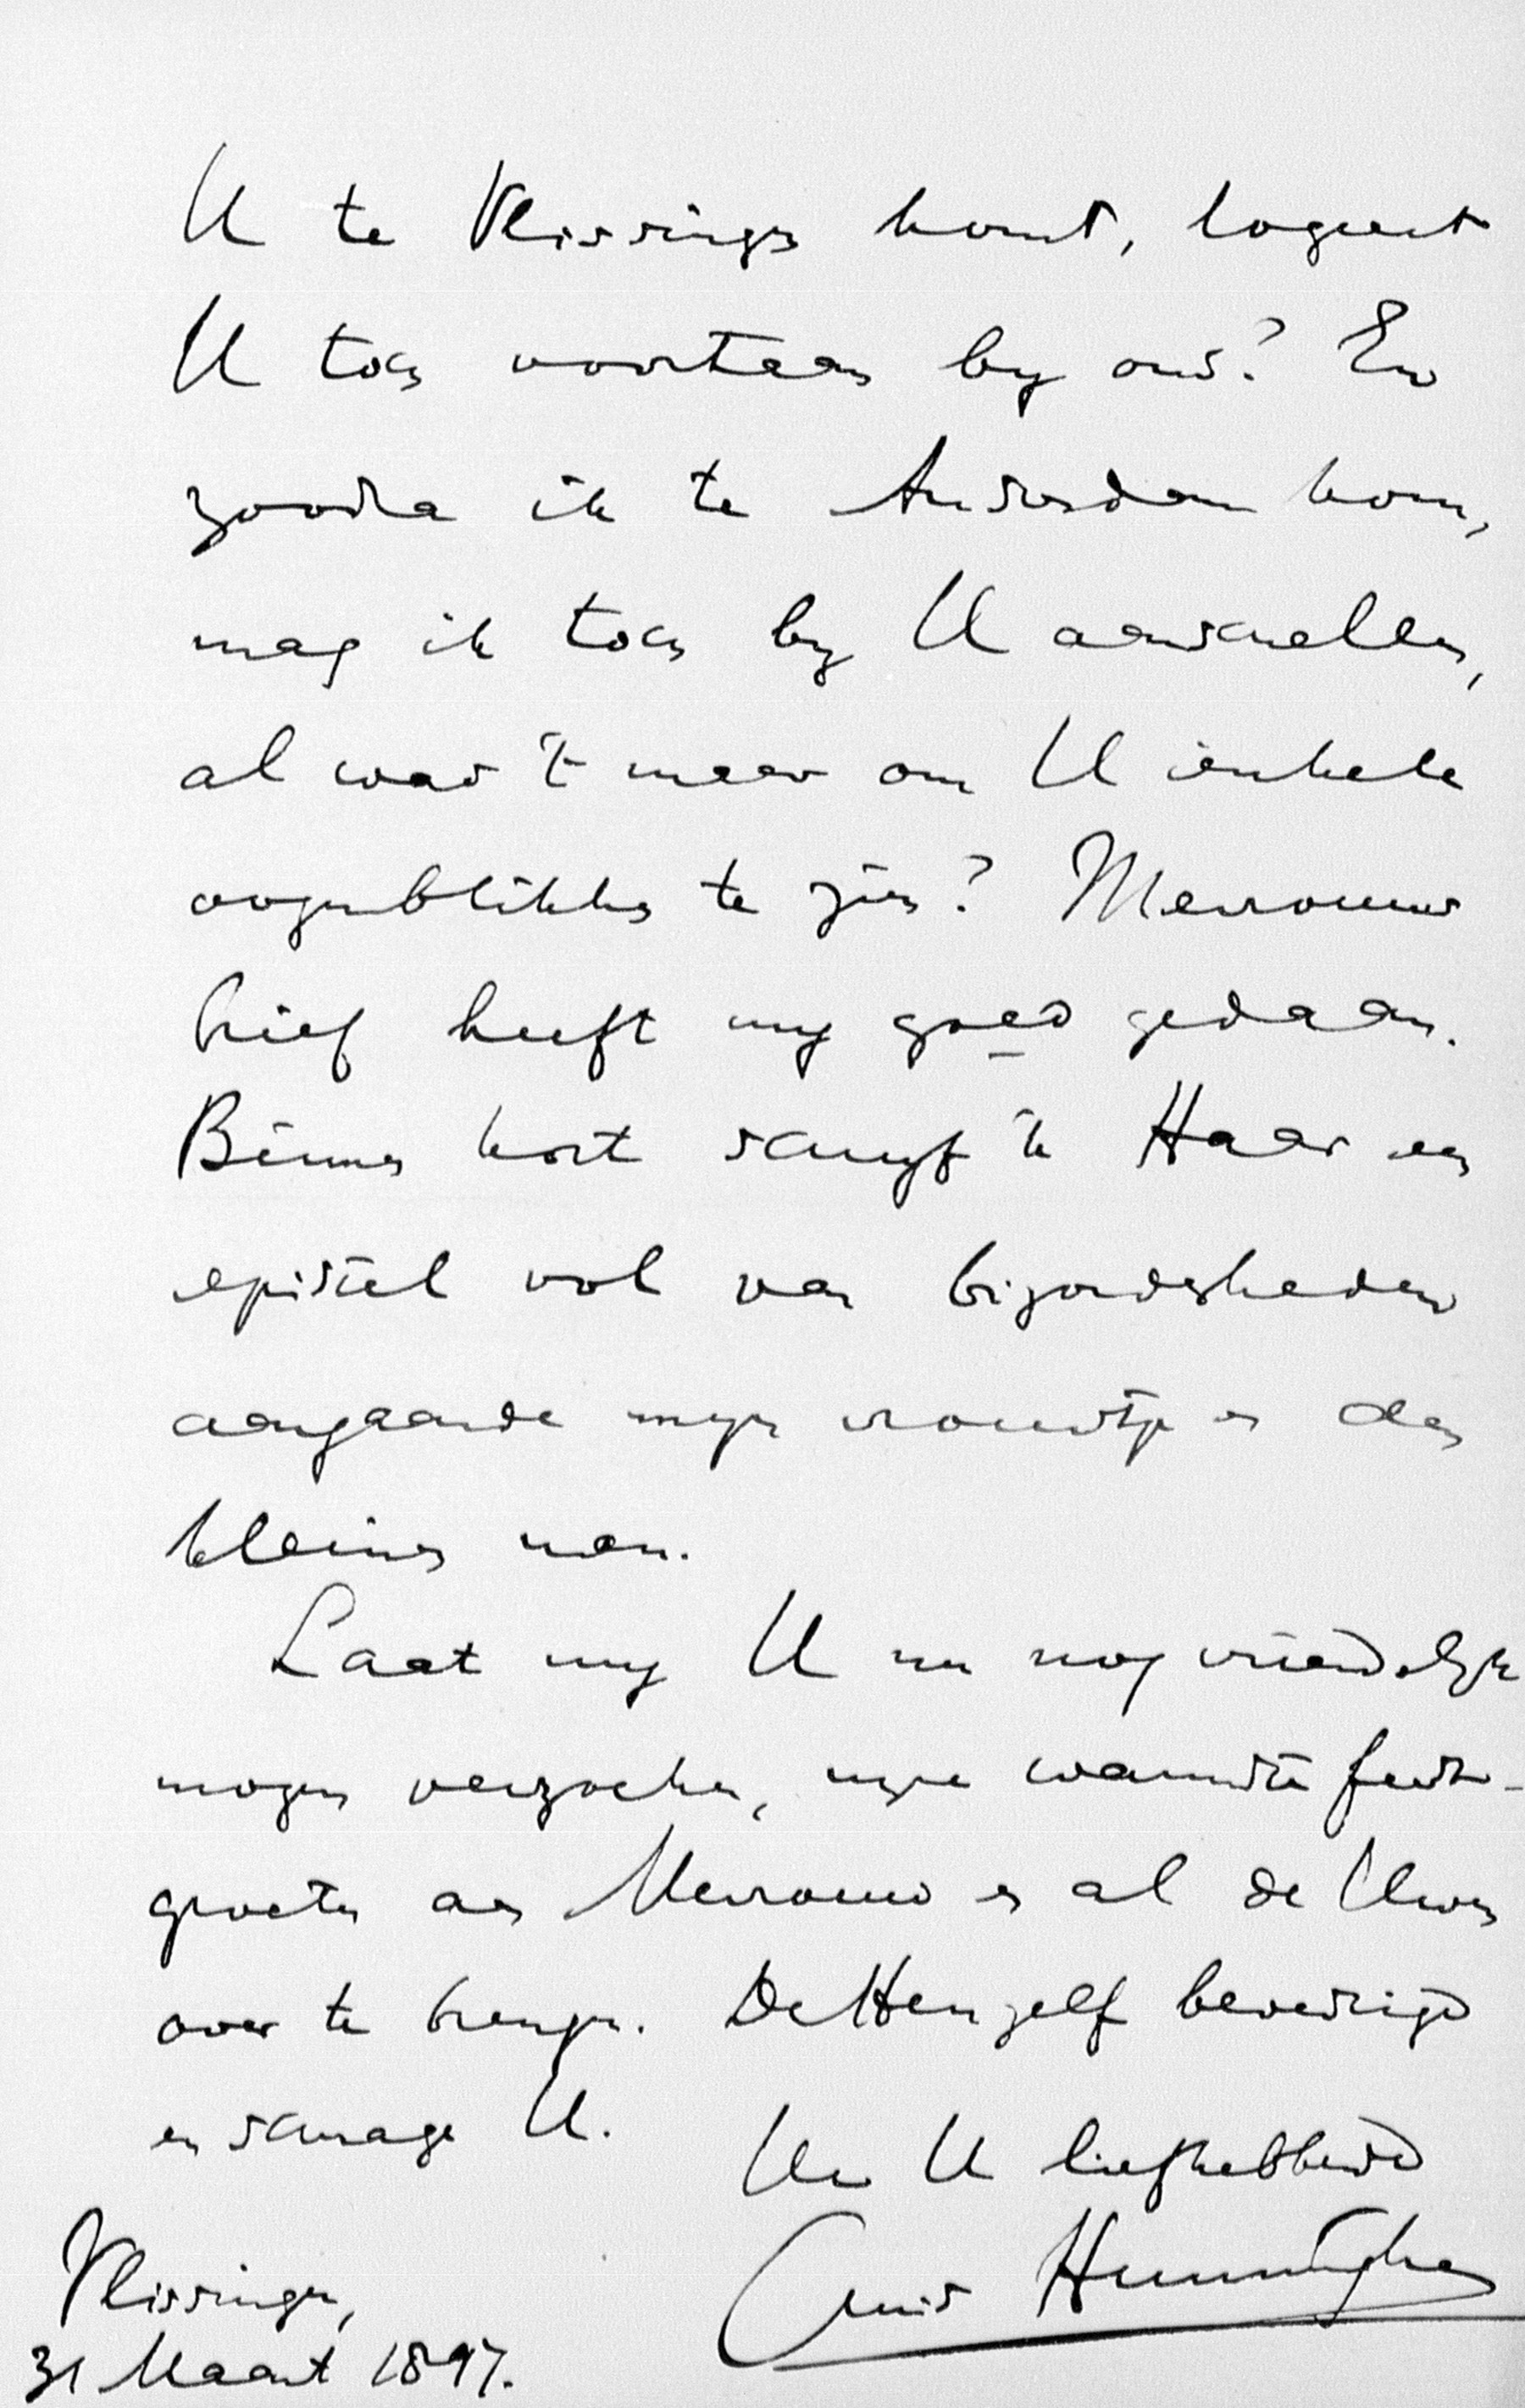 U te Vlissingen komt, logeert
U toch voortaan by ons? En
zoodra ik te Amsterdam kom,
mag ik toch by U aanschellen,
al was 't maar om U enkele
oogenblikken te zien? Mevrouws
brief heeft my goed gedaan.
Binnen kort schryf ik Haar een
epistel vol van bizonderheden
aangaande myn vrouwtje en den
kleinen man.
Laat my U nu nog vriendelyk
mogen verzoeken, myne warmste feest-
groeten aan Mevrouw en al de Uwen
over te brengen. De Heer zelf bevestige
en schrage U.
Uw U liefhebbend
Chris Hunningher
Vlissingen,
31 Maart 1897.